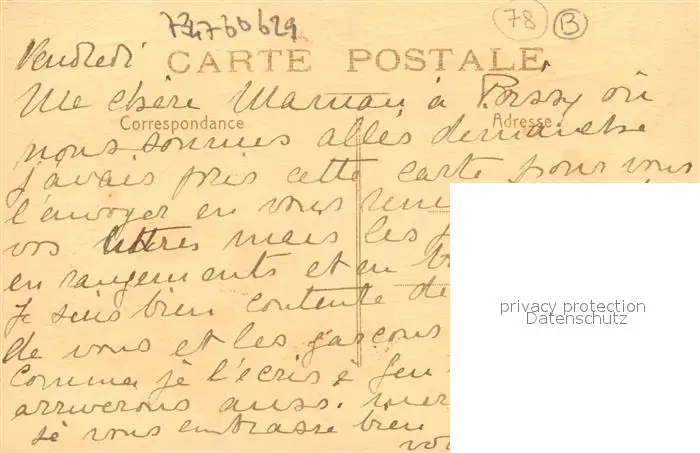 734760629
78
B
Vendredi
CARTE POSTALE
Ma chère Maman à Poissy où
Correspondance
Adresse
nous sommes allés dimanche
j'avais pris cette carte pour vous
l'envoyer en vous
vos lettres mais les
en rangements et en
Je suis bien contente de
de vous et les garçons
comme je l'écris à
arriverons aussi.
je vous embrasse bien
privacy protection
Datenschutz